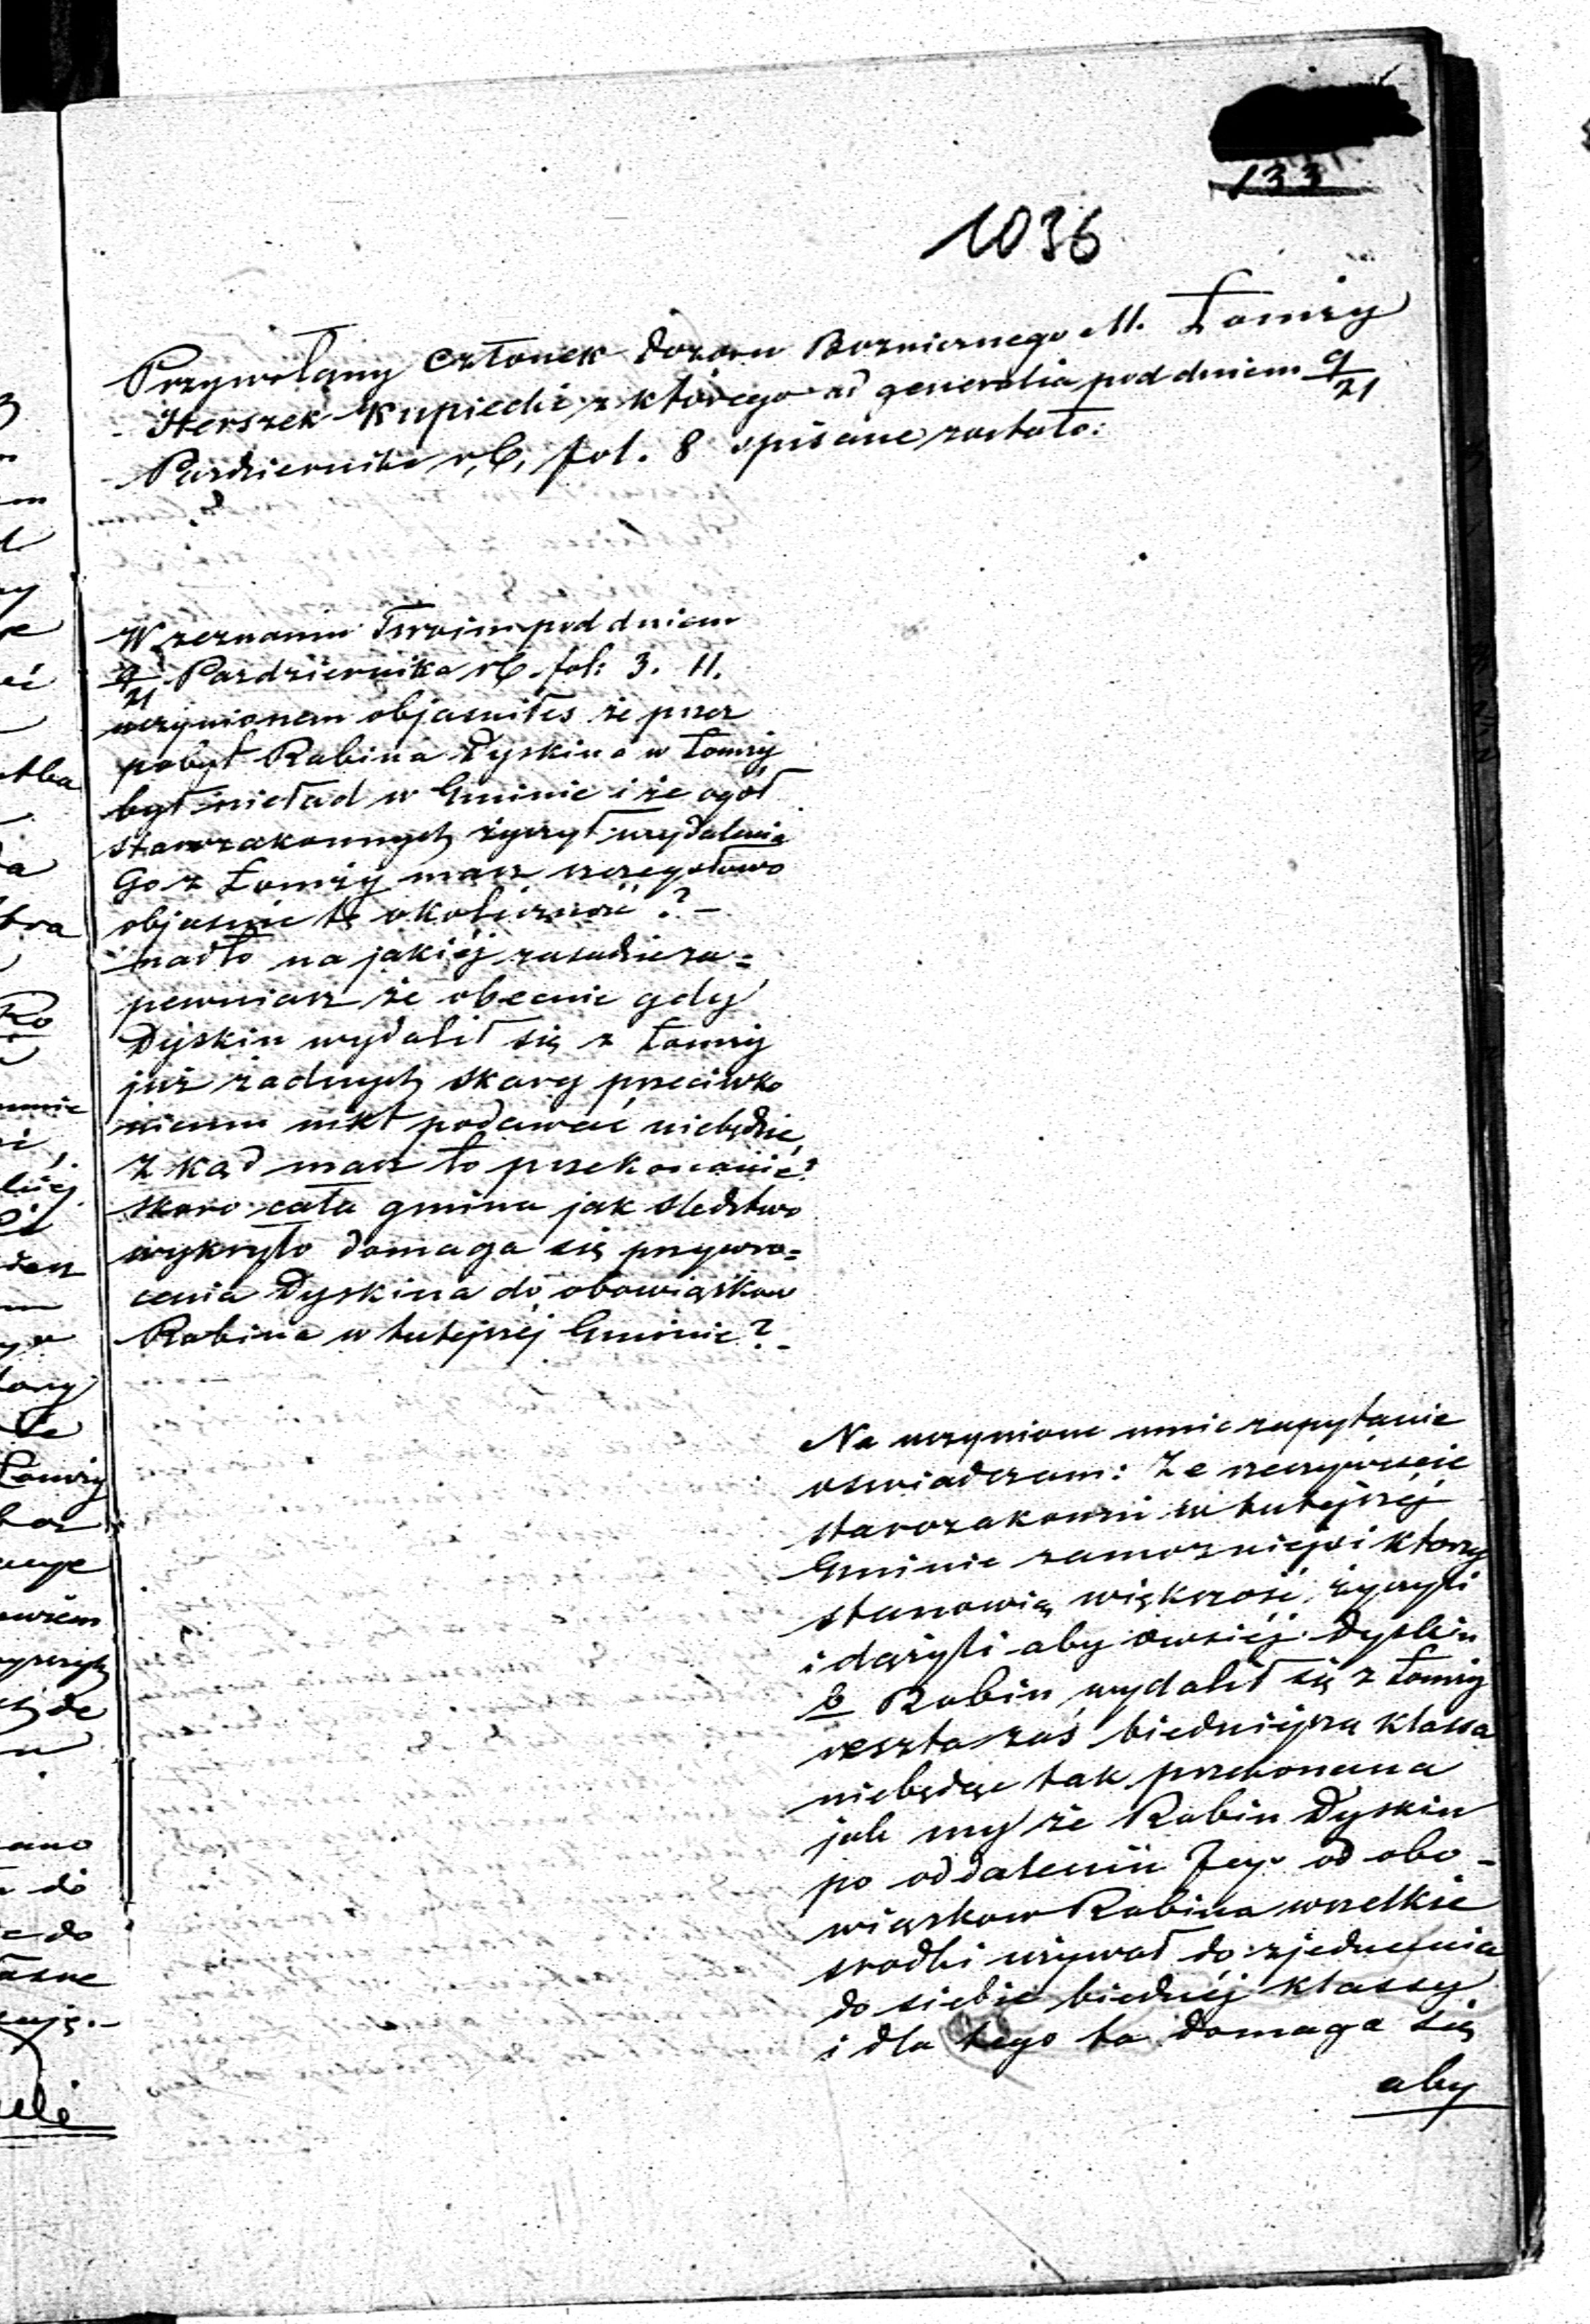 133
1036
Przywołany Członek Dozoru Boznicznego M. Łomży
Herszek Kupiecki z którego ad generalia pod dniem 9/21
Pazdziernika r, b, fol. 8 spisane zostało:
W zeznaniu Twoim pod dniem
9/21 Pazdziernika rb fol: 3. 11.
uczynionem objasniłes że przez
pobyt Rabina Dyskina w Łomży
był nieład w Gminie i że ogół
starozakonnych życzył wydalenia
Go z Łomży masz szczegołowo
objasnić tę okoliczność ? –
nadto na jakiéj zasadzie za=
pewniasz że obecnie gdy
Dyskin wydalił się z Łomży
już żadnych skarg przeciwko
niemu nikt podawać niebędzie,
z kąd masz to przekonanie?
skoro cała gmina jak sledztwo
wykryło domaga się przywro=
cenia Dyskina do obowiązkow
Rabina w tutejszéj Gminie ? –
Na uczynione mnie zapytanie
oswiadczam: Ze rzeczywiscie
starozakonni w tutejszéj
Gminie zamozniejsi ktorzy
stanowią większość, życzyli
i dązyli aby Owsiéj Dyskin
b Rabin wydalił się z Łomży
reszta zaś biedniejsza klassa
niebędąc tak przekonana
jak my że Rabin Dyskin
po oddaleniu Jego od obo-
wiązkow Rabina wszelkie
srodki używał do zjednania
do siebie biednéj klassy
i dla tego ta domaga się
aby